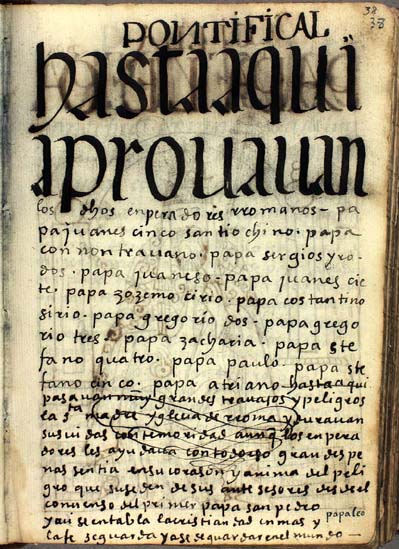 38
38
PONTIFICAL
hasta aqui
aprouauan
los dhos enperadores rromanos - pa
pa juanes cinco santiochino. papa
con non trauano. papa sergios y ro
dos. papa juanes 6 - papa juanes cie
te. papa zozemo cirio. papa costantino
sirio. papa gregorio dos - papa grego
rio tres. papa zacharia. papa ste
fano quatro. papa paulo. papa ste
fano cinco. papa atriano - hasta aqui
pasauan muy grandes trauajos y peligros
la sta madre yglecia de rroma y durauan
sus uidas con temoridad aunq̃ los enpera
dores les ayudaua con todo eso grandes pe
nas sentia en su corasón y anima del peli
gro que suseden de sus antesesores desde el
comienso del primer papa san pedro
papa leo
ya se entabla la cristiandad en mas y
la fe se guarda y a se de guardar en el mundo -